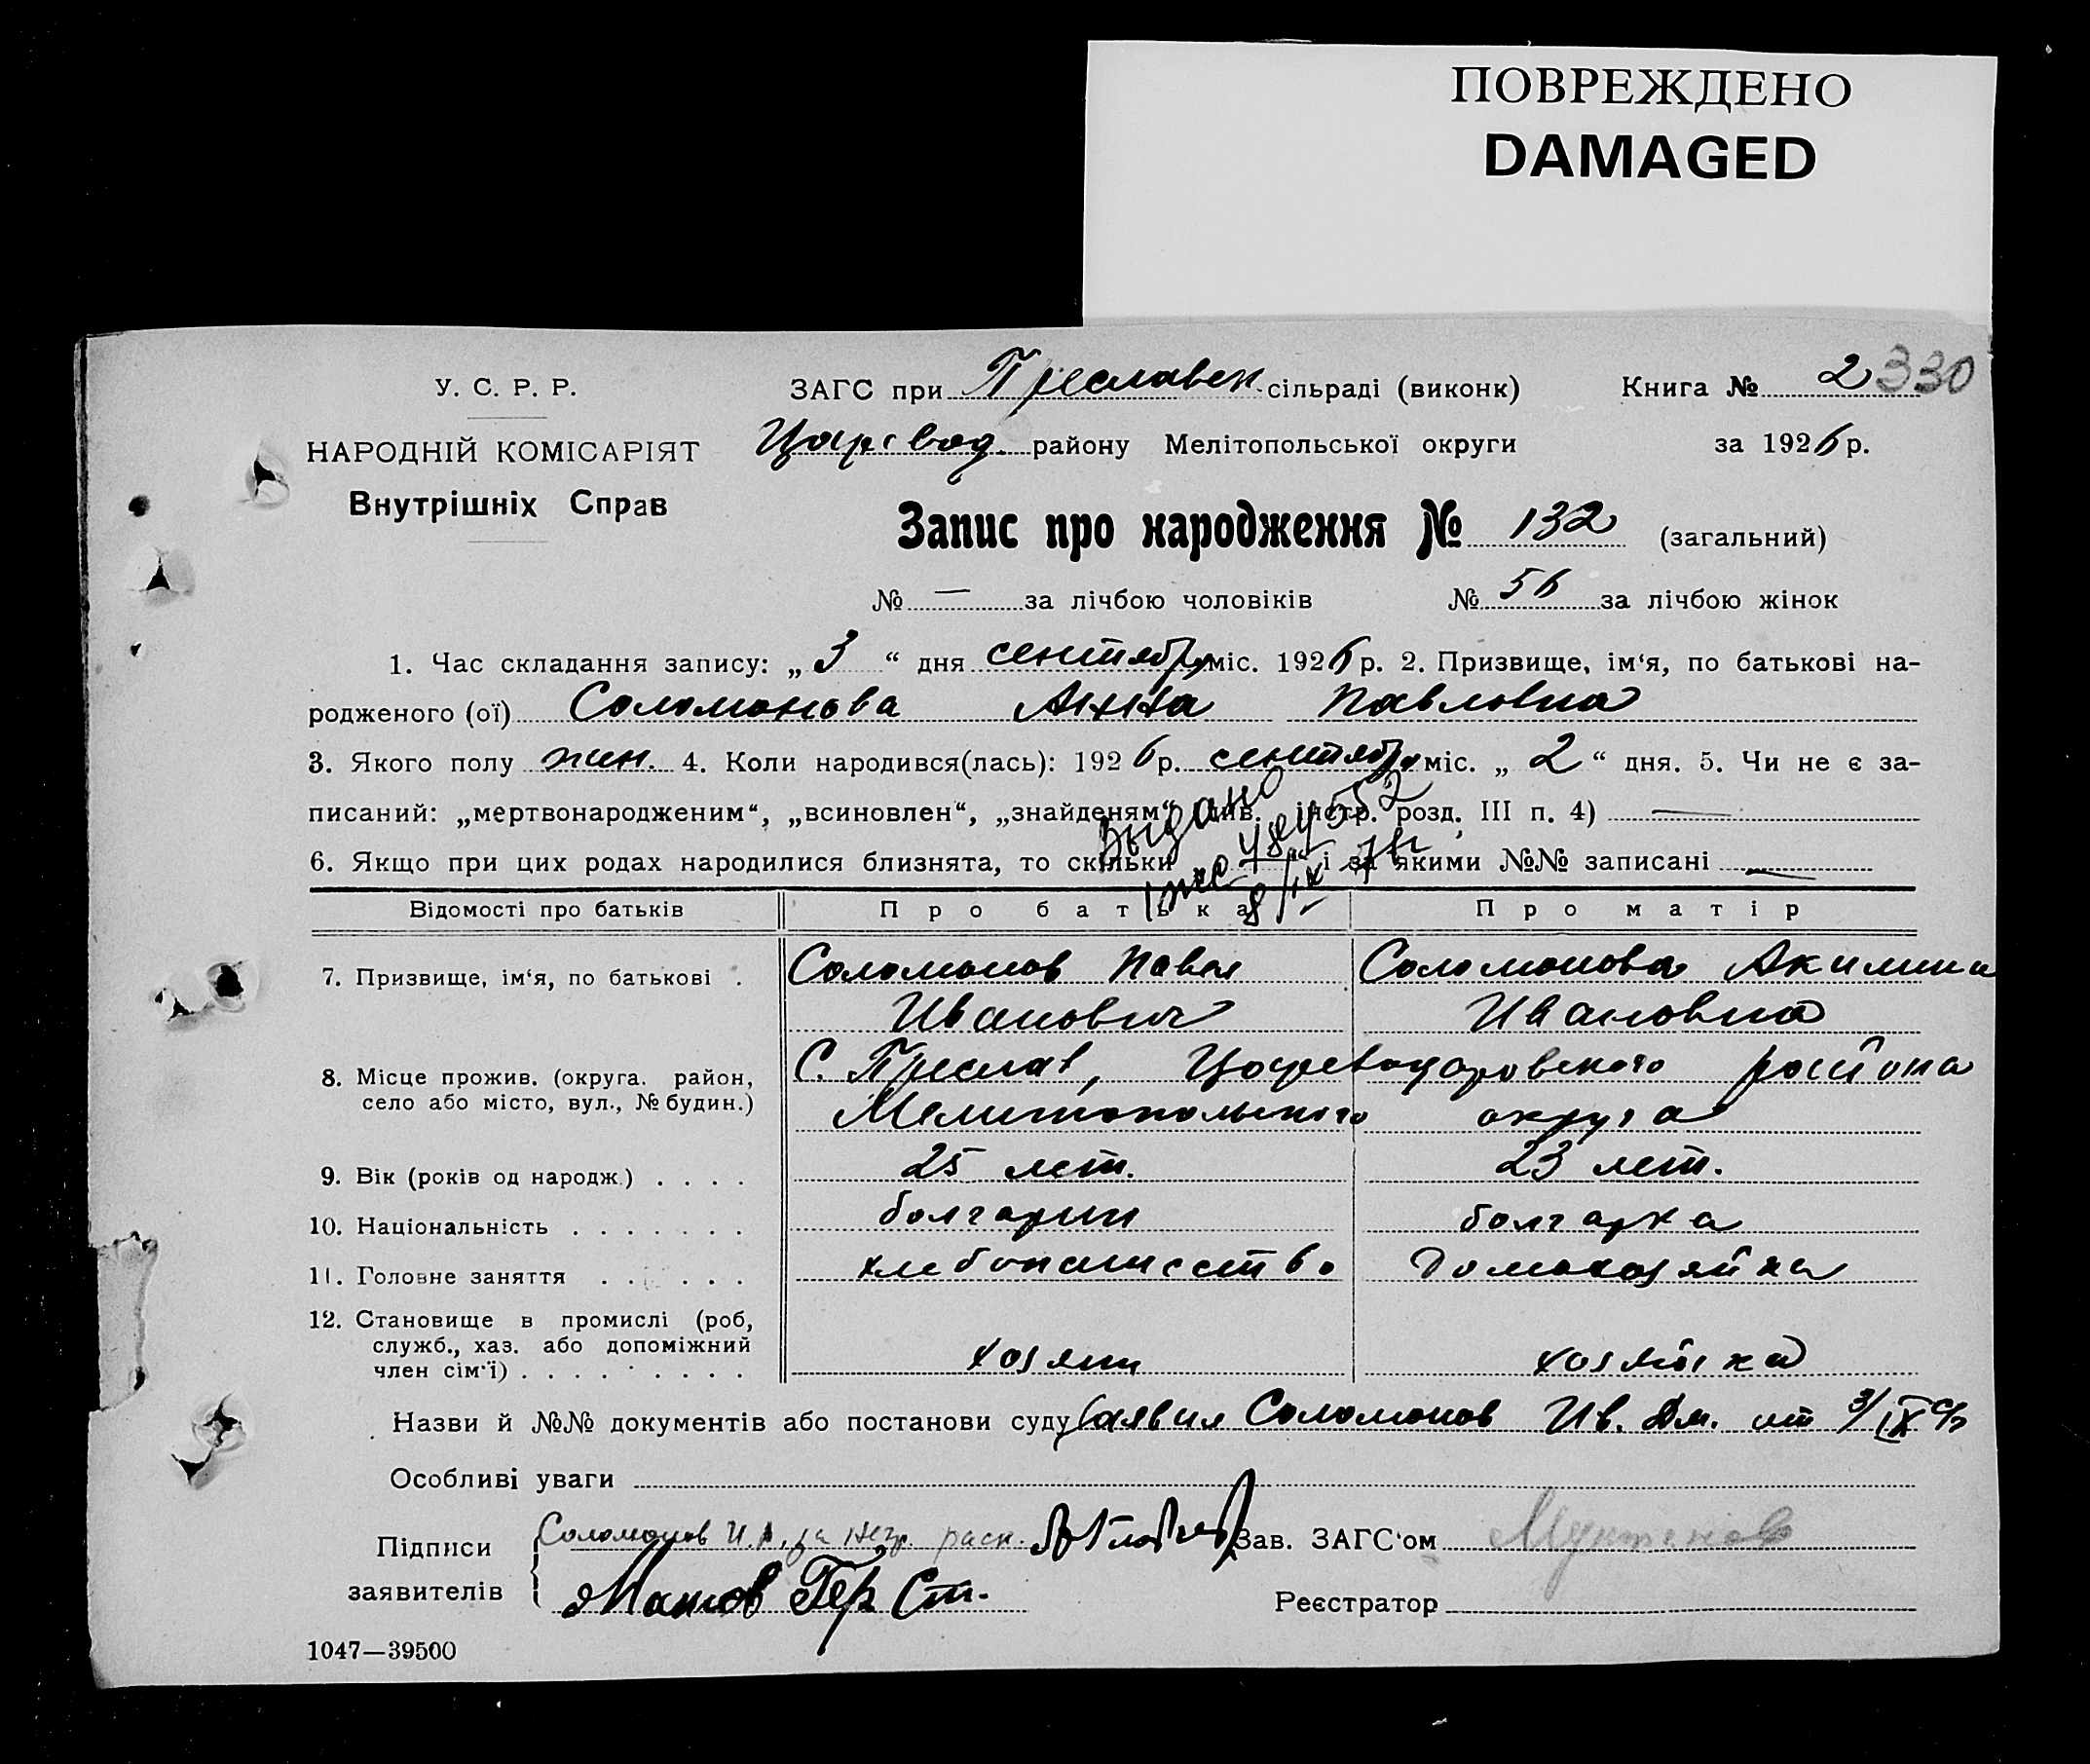 ПОВРЕЖДЕНО
DAMAGED
У. С. Р. Р.
НАРОДНІЙ КОМІСАРІЯТ
Внутрішніх Справ
ЗАГС при Преславск сільраді (виконк) Книга № 2 330
Царевод. району Мелітопольської округи за 1926 р.
Запис про народження № 132 (загальний)
№ — за лічбою чоловіків № 56 за лічбою жінок
1. Час складання запису: „ 3 “ дня сентября міс. 1926 р. 2. Призвище, ім‘я, по батькові на-
родженого (ої) Соломонова Анна Павловна
3. Якого полу жен. 4. Коли народився(лась): 1926 р. сентября міс. „ 2 “ дня. 5. Чи не є за-
писаний: „мертвонародженим“, „всиновлен“, „знайденям“ (див. інстр. розд. III п. 4) —
6. Якщо при цих родах народилися близнята, то скільки і за якими №№ записані —
Выдано
Відомості про батьків Про батька Про матір
7. Призвище, ім‘я, по батькові . Соломонов Павел Соломонова Акилина
Иванович Ивановна
8. Місце прожив. (округа. район, С. Преслав, Цареводаровского района
село або місто, вул., № будин.) Мелитопольского округа
9. Вік (років од народж.) . . . . 25 лет. 23 лет.
10. Національність . . . . . . . болгарин болгарка
11. Головне заняття . . . . . . хлебопашество домохозяйка
12. Становище в промислі (роб,
служб., хаз. або допоміжний
член сім‘ї) . . . . . . . . . хозяин хозяйка
Назви й №№ документів або постанови суду Заявил Соломонов Ив. Дм. от 3/IX с/г
Особливі уваги
Підписи Соломонов И. Д. за негр. расп. Зав. ЗАГС‘ом
заявителів Гер Ст. Реєстратор
1047—39500